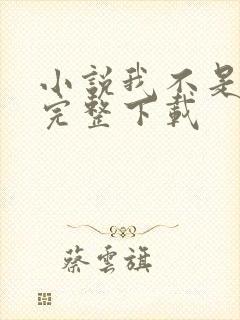 小說我不是
完整下載
蔡雲旗